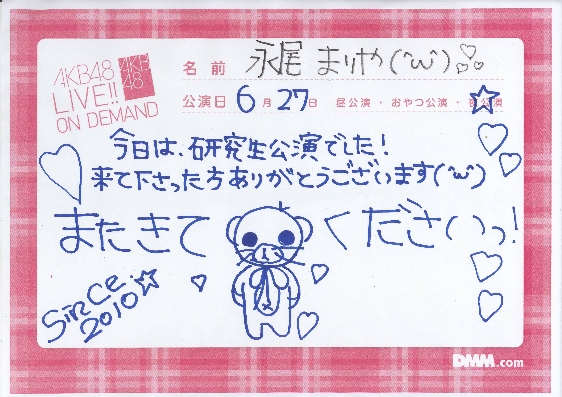 AKB48
LIVE!!
ON DEMAND
AKB
48
名前 永尾 まりや(^ω^)
公演日 6月27日 昼公演・おやつ公演・夜公演
今日は、研究生公演でした!
来て下さった方ありがとうございます(^ω^)
またきてくださいっ!
SiNCe
2010
DMM.com